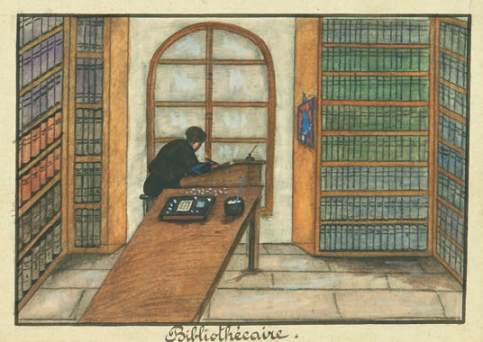 Bibliothécaire.